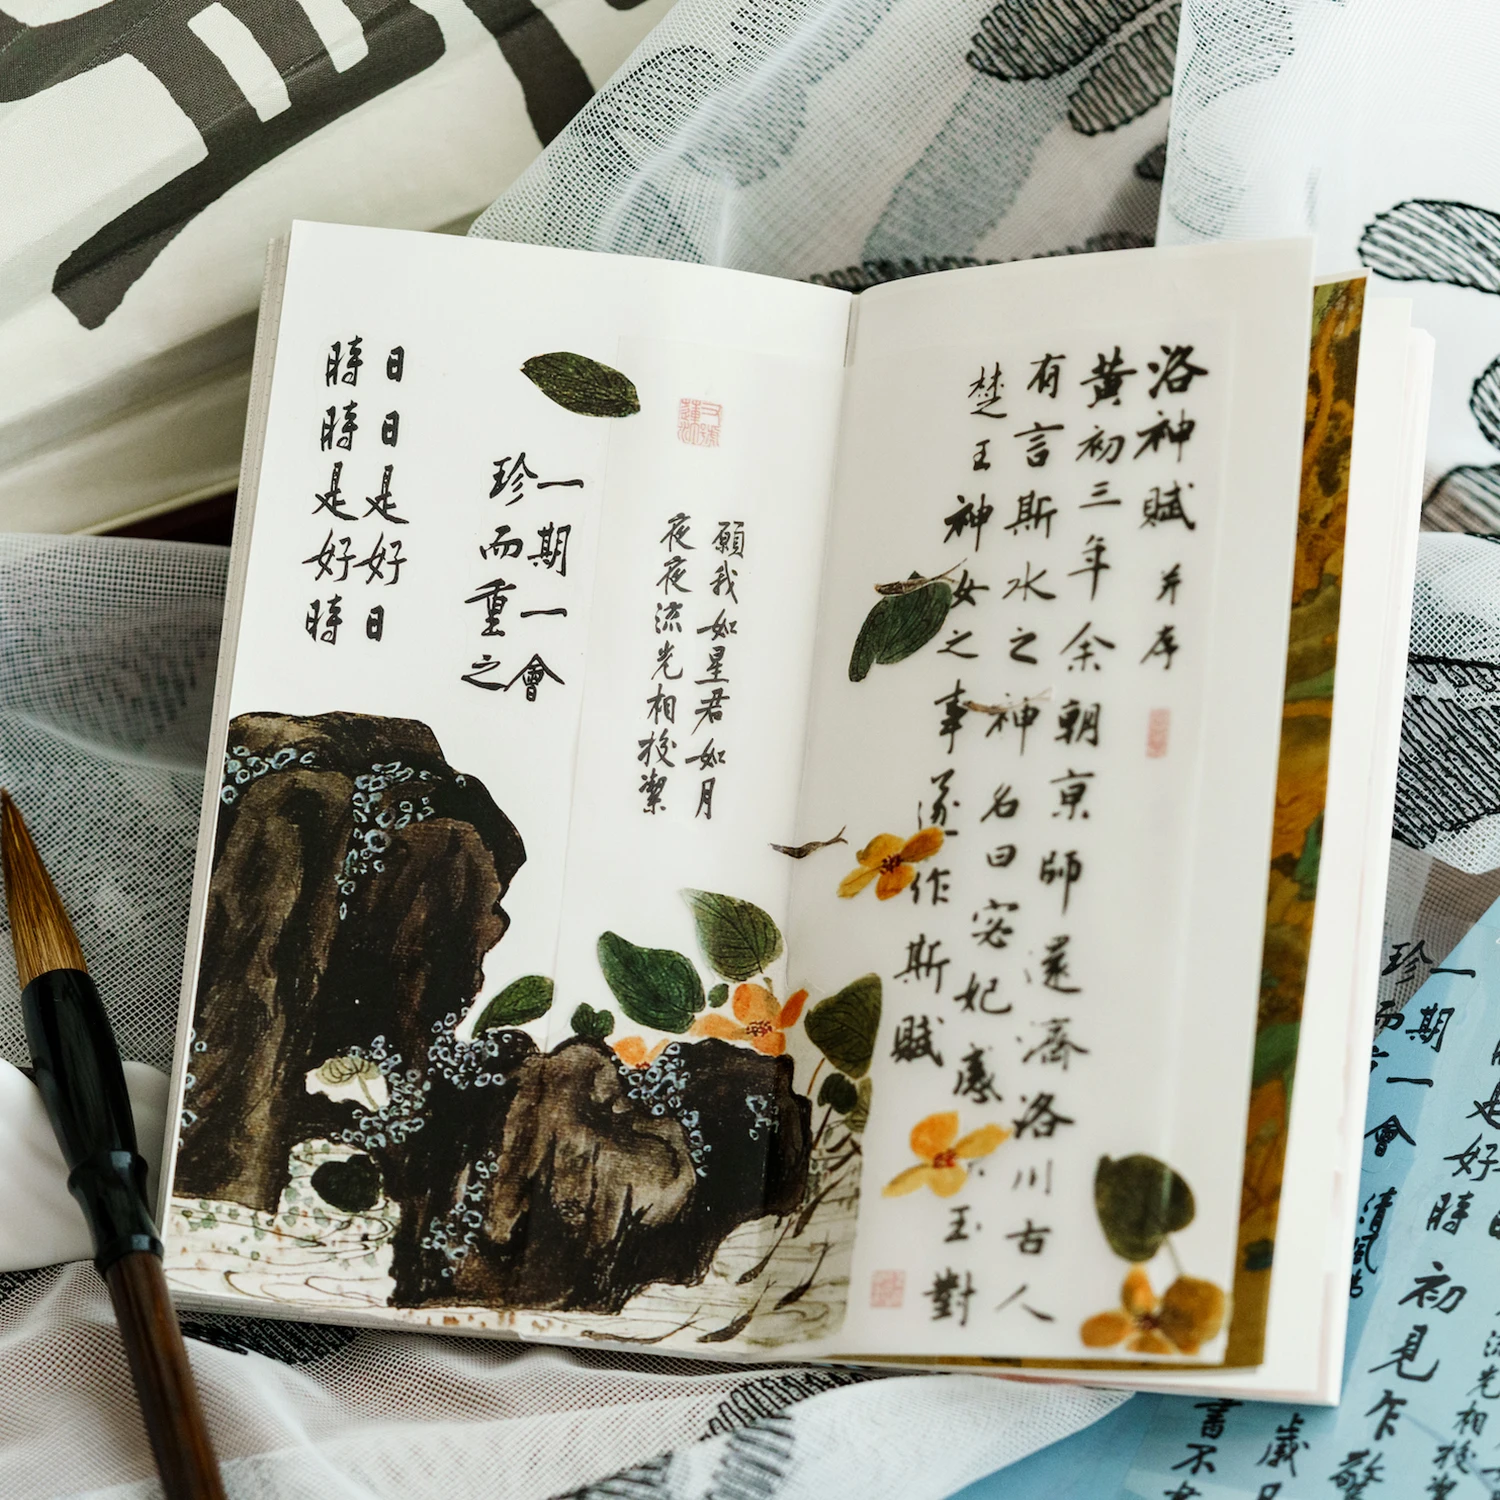 洛神賦并序
黃初三年余朝京師還濟洛川古人
有言斯水之神名曰宓妃感
楚王神女之事遂作斯賦
玉對
願我如星君如月
夜夜流光相皎潔
一期一會
珍而重之
日日是好日
時時是好時
一期一會
珍而
好時
初見乍驚
清風
流光相皎潔
歲
書不